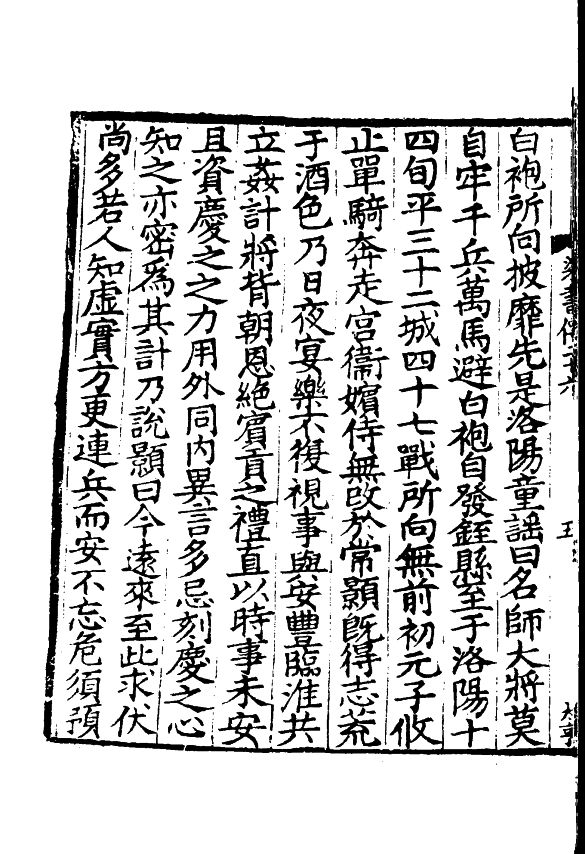 梁書傳二十六
五
白袍所向披靡先是洛陽童謠曰名師大將莫
自牢千兵萬馬避白袍自發銍縣至于洛陽十
四旬平三十二城四十七戰所向無前初元子攸
止單騎奔走宮衞嬪侍無改於常顥旣得志荒
于酒色乃日夜宴樂不復視事與安豐臨淮共
立姦計將背朝恩絕賔貢之禮直以時事未安
且資慶之之力用外同內異言多忌刻慶之心
知之亦密爲其計乃說顥曰今遠來至此求伏
尚多若人知虛實方更連兵而安不忘危須預